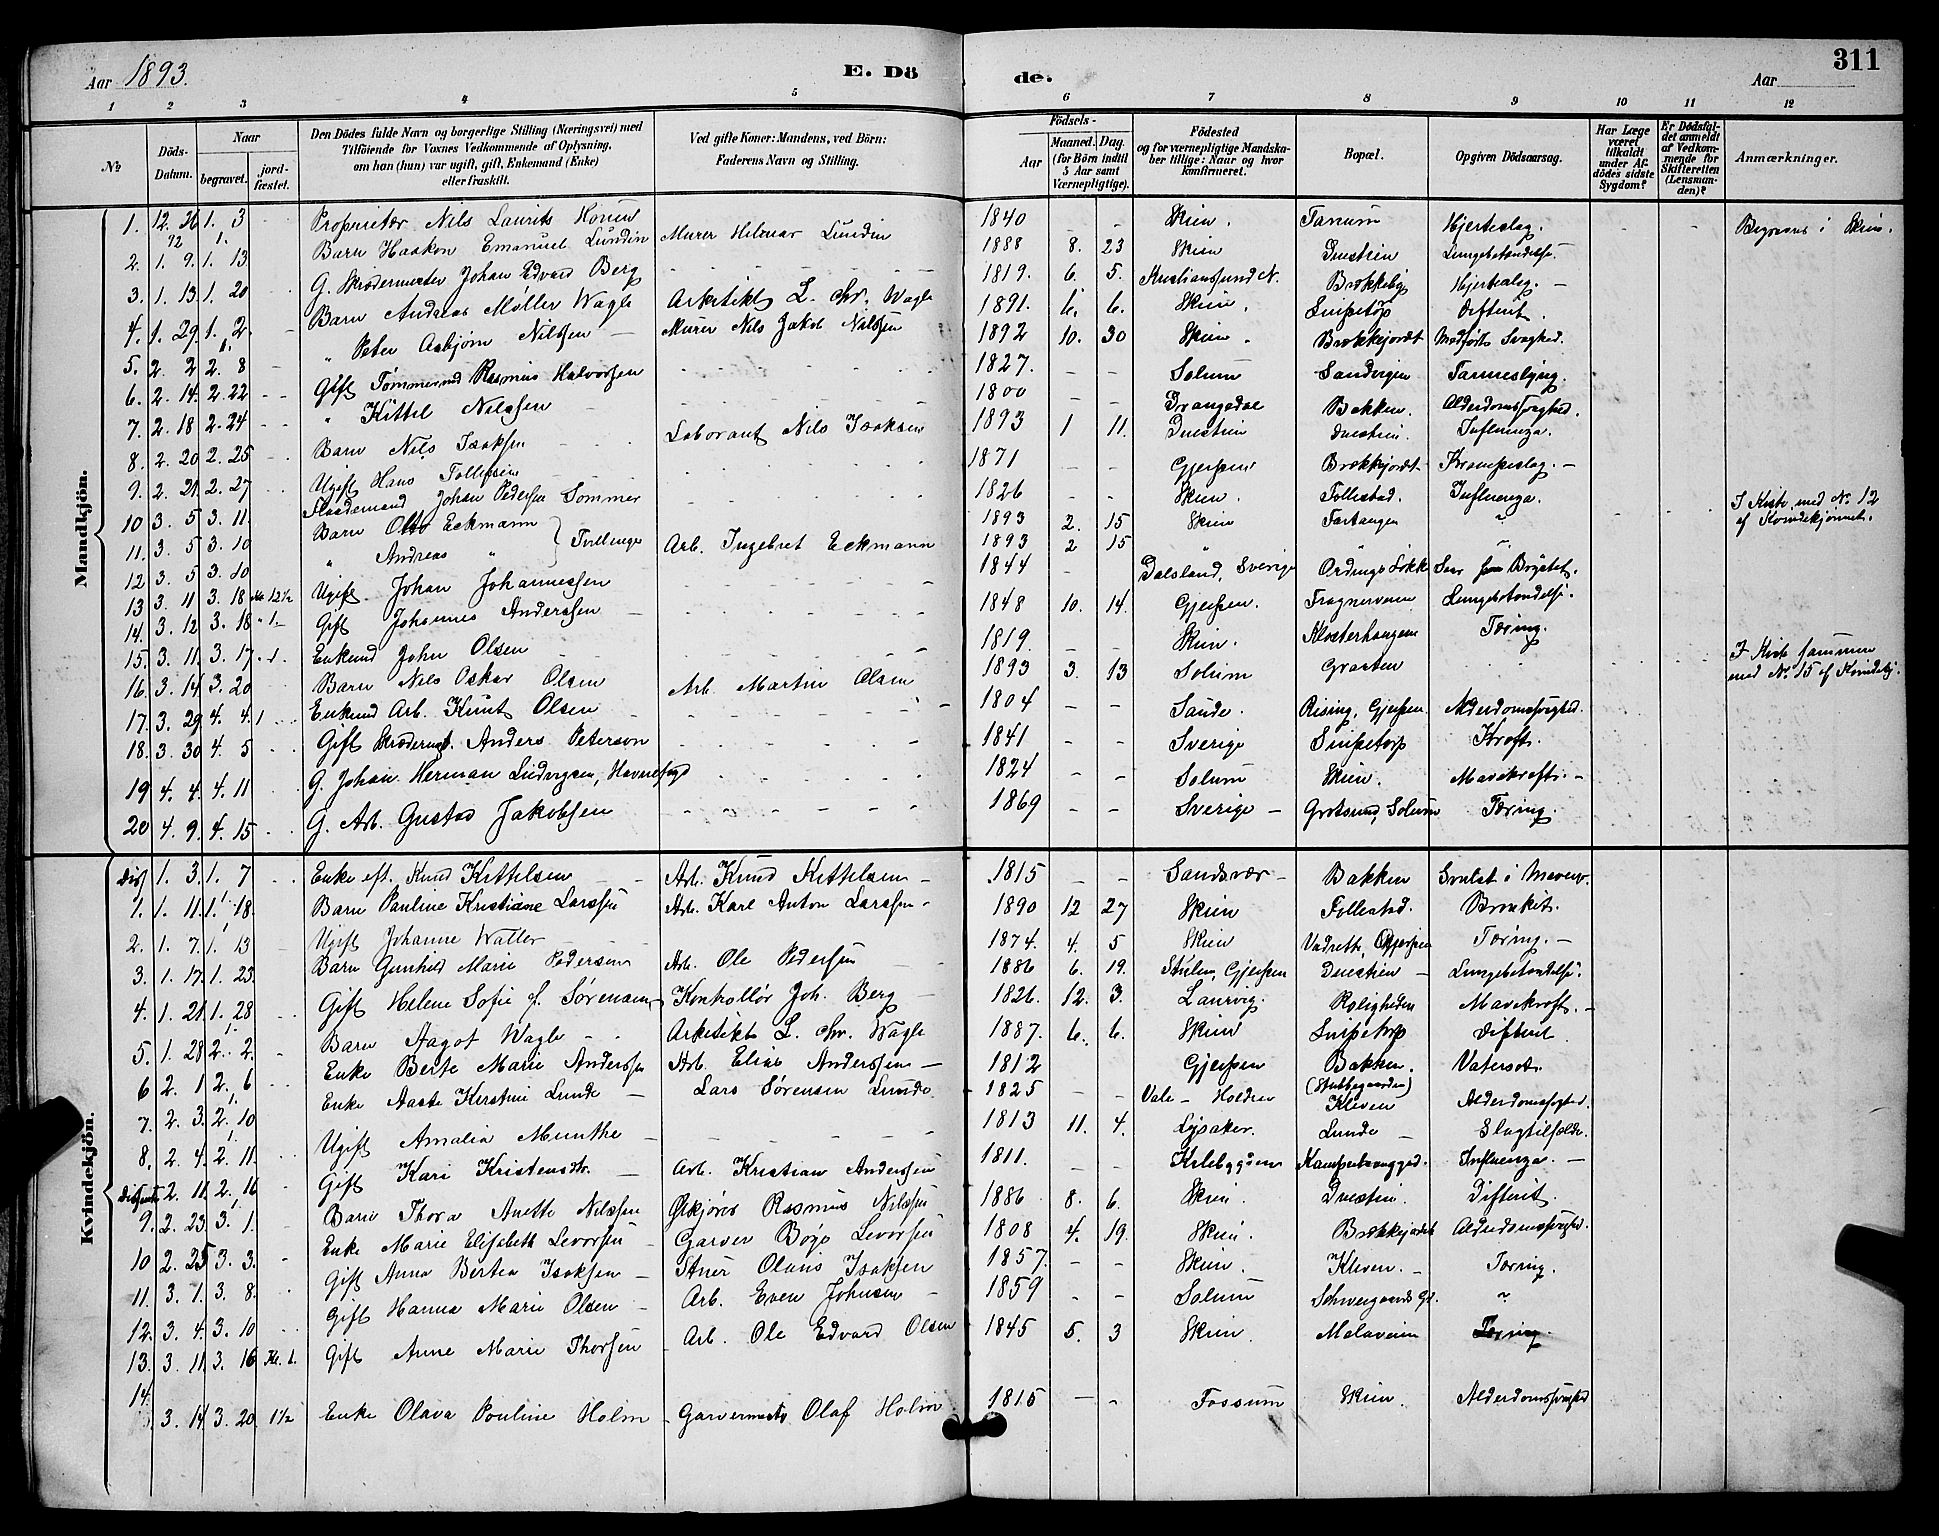 Aar 1893. E. Dö de. Aar 311
1 2 3 4 5 6 7 8 9 10 11 12
No
Döds-Datum.
Naar begravet. jordfæstet.
Den Dödes fulde Navn og borgerlige Stilling (Næringsvei) med Tilföiende for Voxnes Vedkommende af Oplysning, om han (hun) var ugift, gift, Enkemand (Enke) eller fraskilt.
Ved gifte Koner: Mandens, ved Börn: Faderens Navn og Stilling.
Födsels- Aar Maaned. Dag. (for Börn indtil 5 Aar samt Værnepligtige).
Födested og for værnepligtige Mandskaber tillige: Naar og hvor konfirmeret.
Bopæl.
Opgiven Dödsaarsag.
Har Læge været tilkaldt under Afdödes sidste Sygdom?
Er Dödsfaldet anmeldt af Vedkommende for Skifteretten (Lensmanden)?
Anmærkninger.
Mandkjön.
1. 12. 26 1. 3 Proprietær Nils Laurits Houen 1840 - - Skien. Tanum Hjerteslag. - - Begraves i Skien.
2. 1. 9. 1. 13 Barn Haakon Emanuel Lundin Murer Hilmar Lundin 1888 8. 23 Skien Duestien Lungebetændelse.
3. 1. 13 1. 20 G. Skrædermester Johan Edvard Berg - - - 1819. 6. 5. Kristiansund N. Brekkeby Hjerteslag. -
4. 1. 29. 1. 2 Barn Andreas Møller Wagle Arkitekt L. Chr. Wagle 1891. 6. 6. Skien. Snipetorp Difterit.
5. 2. 2 2. 8 - " Peter Asbjørn Nilssen - Murer Nils Jakob Nilssen 1892 10. 30 Skien. Brekkejordet Medfødt Svaghed.
6. 2. 14. 2. 22 - - Gift Tømmermd Rasmus Halvorsen - - - 1827. - - Solum Sandvigen Tarmeslyng.
7. 2. 18 2. 24 " Kittel Nilssen - - - - 1800 - - Drangedal Bakken. Alderdomssvaghed.
8. 2. 20 2. 25 Barn Nils Isaksen Laborant Nils Isaksen 1893 1 11. Duestien Duestien. Influenza.
9. 2. 21. 2. 27 Ugift Hans Tollefsen - - - 1871 - - Gjerpen Brekkejordet Krampeslag. -
10 3. 5 3. 11. Johan Pedersen Sommer - - - 1826 - - Skien. Follestad. Influenza.
11. 3. 5 3. 10 Barn Otto Eckmann } Tvillinge Arb. Ingebret Eckmann 1893 2. 15 Skien " I Kiste med No 12 af Kvindekjønnet.
12 3. 5 3. 10 " Andreas " 1893 2 15 " "
13 3. 11 3. 18 Kl 12½ Ugift Johan Johannessen - - - 1844 - Dalsland, Sverige Saar Brystet.
14. 3. 12 3. 18 " 1 - Gift Johannes Anderssen - - - 1848 10. 14. Gjerpen. Lungebetændelse.
15. 3. 11. 3. 17 " 1. Enkemd John Olsen - - - 1819. - - Skien. Klosterhaugen Tæring.
16. 3. 14 3. 20 Barn Nils Oskar Olsen Arb. Martin Olsen 1893 3. 13 Solum Graaten I Kiste sammen med No 15 af Kvindekj.
17. 3. 29 4. 4. 1 Enkemd Arb. Knut Olsen - - - 1804 - - Sande. Rising, Gjerpen Alderdomssvaghed.
18. 3. 30 4. 5 Gift Anders Peterson - - - 1841 - - Sverige Snipetorp Kræft.
19 4. 4. 4. 11 G. Johan Herman Ludvigsen, Havnefogd - - - 1824 - - Solum Skien. Mavekræft. -
20 4. 9. 4. 15 G. Arb. Gustad Jakobsen - - - 1869 - - Sverige - Solum Tæring.
Kvindekjön.
Dis 1. 3. 1. 7 Enke eft. Knud Kittelsen - Arb. Knud Kittelsen - 1815 - - Sandsvær - Bakken Svulst i Maven.
1. 1. 11. 1. 18. Barn Pauline Kristiane Larssen Arb. Karl Anton Larssen - 1890 12 27 Skien Follestad. Bronkit.
2. 1. 7. 1. 13 Ugift Johanne Waller 1874. 4. 5 Skien Gjerpen Tæring. -
3. 1. 17. 1. 23. Barn Gunhild Marie Pedersen Arb. Ole Pedersen - 1886 6. 19. Gjerpen Duestien - Lungebetændelse.
4. 1. 21. 1. 28 Gift Helene Sofie f. Sørensen Kontrollør Joh. Berg - 1826. 12. 3. Laurvig. Roligheden Mavekræft. -
5. 1. 28 2. 2. Barn Aagot Wagle - - Arkitekt L. Chr. Wagle 1887. 6. 6. Skien Snipetorp Difterit
6 2. 1 2. 6 Enke Berte Marie Anderssen Arb. Elias Anderssen - 1812 Gjerpen Bakken. (Stubbegaarden) Vatersot.
7. 2. 3. 2. 10 Enke Aaste Kirstine Lunde - Lars Sørensen Lunde. 1825 - - Vale - Holden Kleven Alderdomssvaghed.
8. 2. 4. 2. 11. Ugift Amalia Munthe - - - 1813 11. 4. Lysaker. Lunde - Slagtilfælde.
2. 11 2. 16 Gift Kari Kristensdtr. - Arb. Kristian Anderssen 1811. - - Influenza. -
9. 2. 23. 3. 1. Barn Thora Anette Nilssen Rasmus Nilssen 1886 8. 6. Skien. Duestien. Difterit.
10 2. 25 3. 3. Enke Marie Elisabeth Levorsen - Garver Børge Levorsen 1808 4. 19. Skien. Brekkejordet Alderdomssvaghed.
11. 3. 1. 3. 8. Gift Anna Bertea Isaksen - Olaus Isaksen 1857. - - Skien. Kleven. - Tæring.
12. 3. 4. 3. 10 Gift Hanna Marie Olsen - Arb. Even Johnsen - 1859 - - Solum Schweigaards Gt. "
13. 3. 11. 3. 16 Kl. 1. Gift Anne Marie Thorsen Arb. Ole Edvard Olsen 1845 5. 3 Skien. Melaveien Tæring.
14. 3. 14 3. 20 1½ Enke Olava Pauline Holm - Garvermest. Olaf Holm 1815 - - Fossum Skien. Alderdomssvaghed